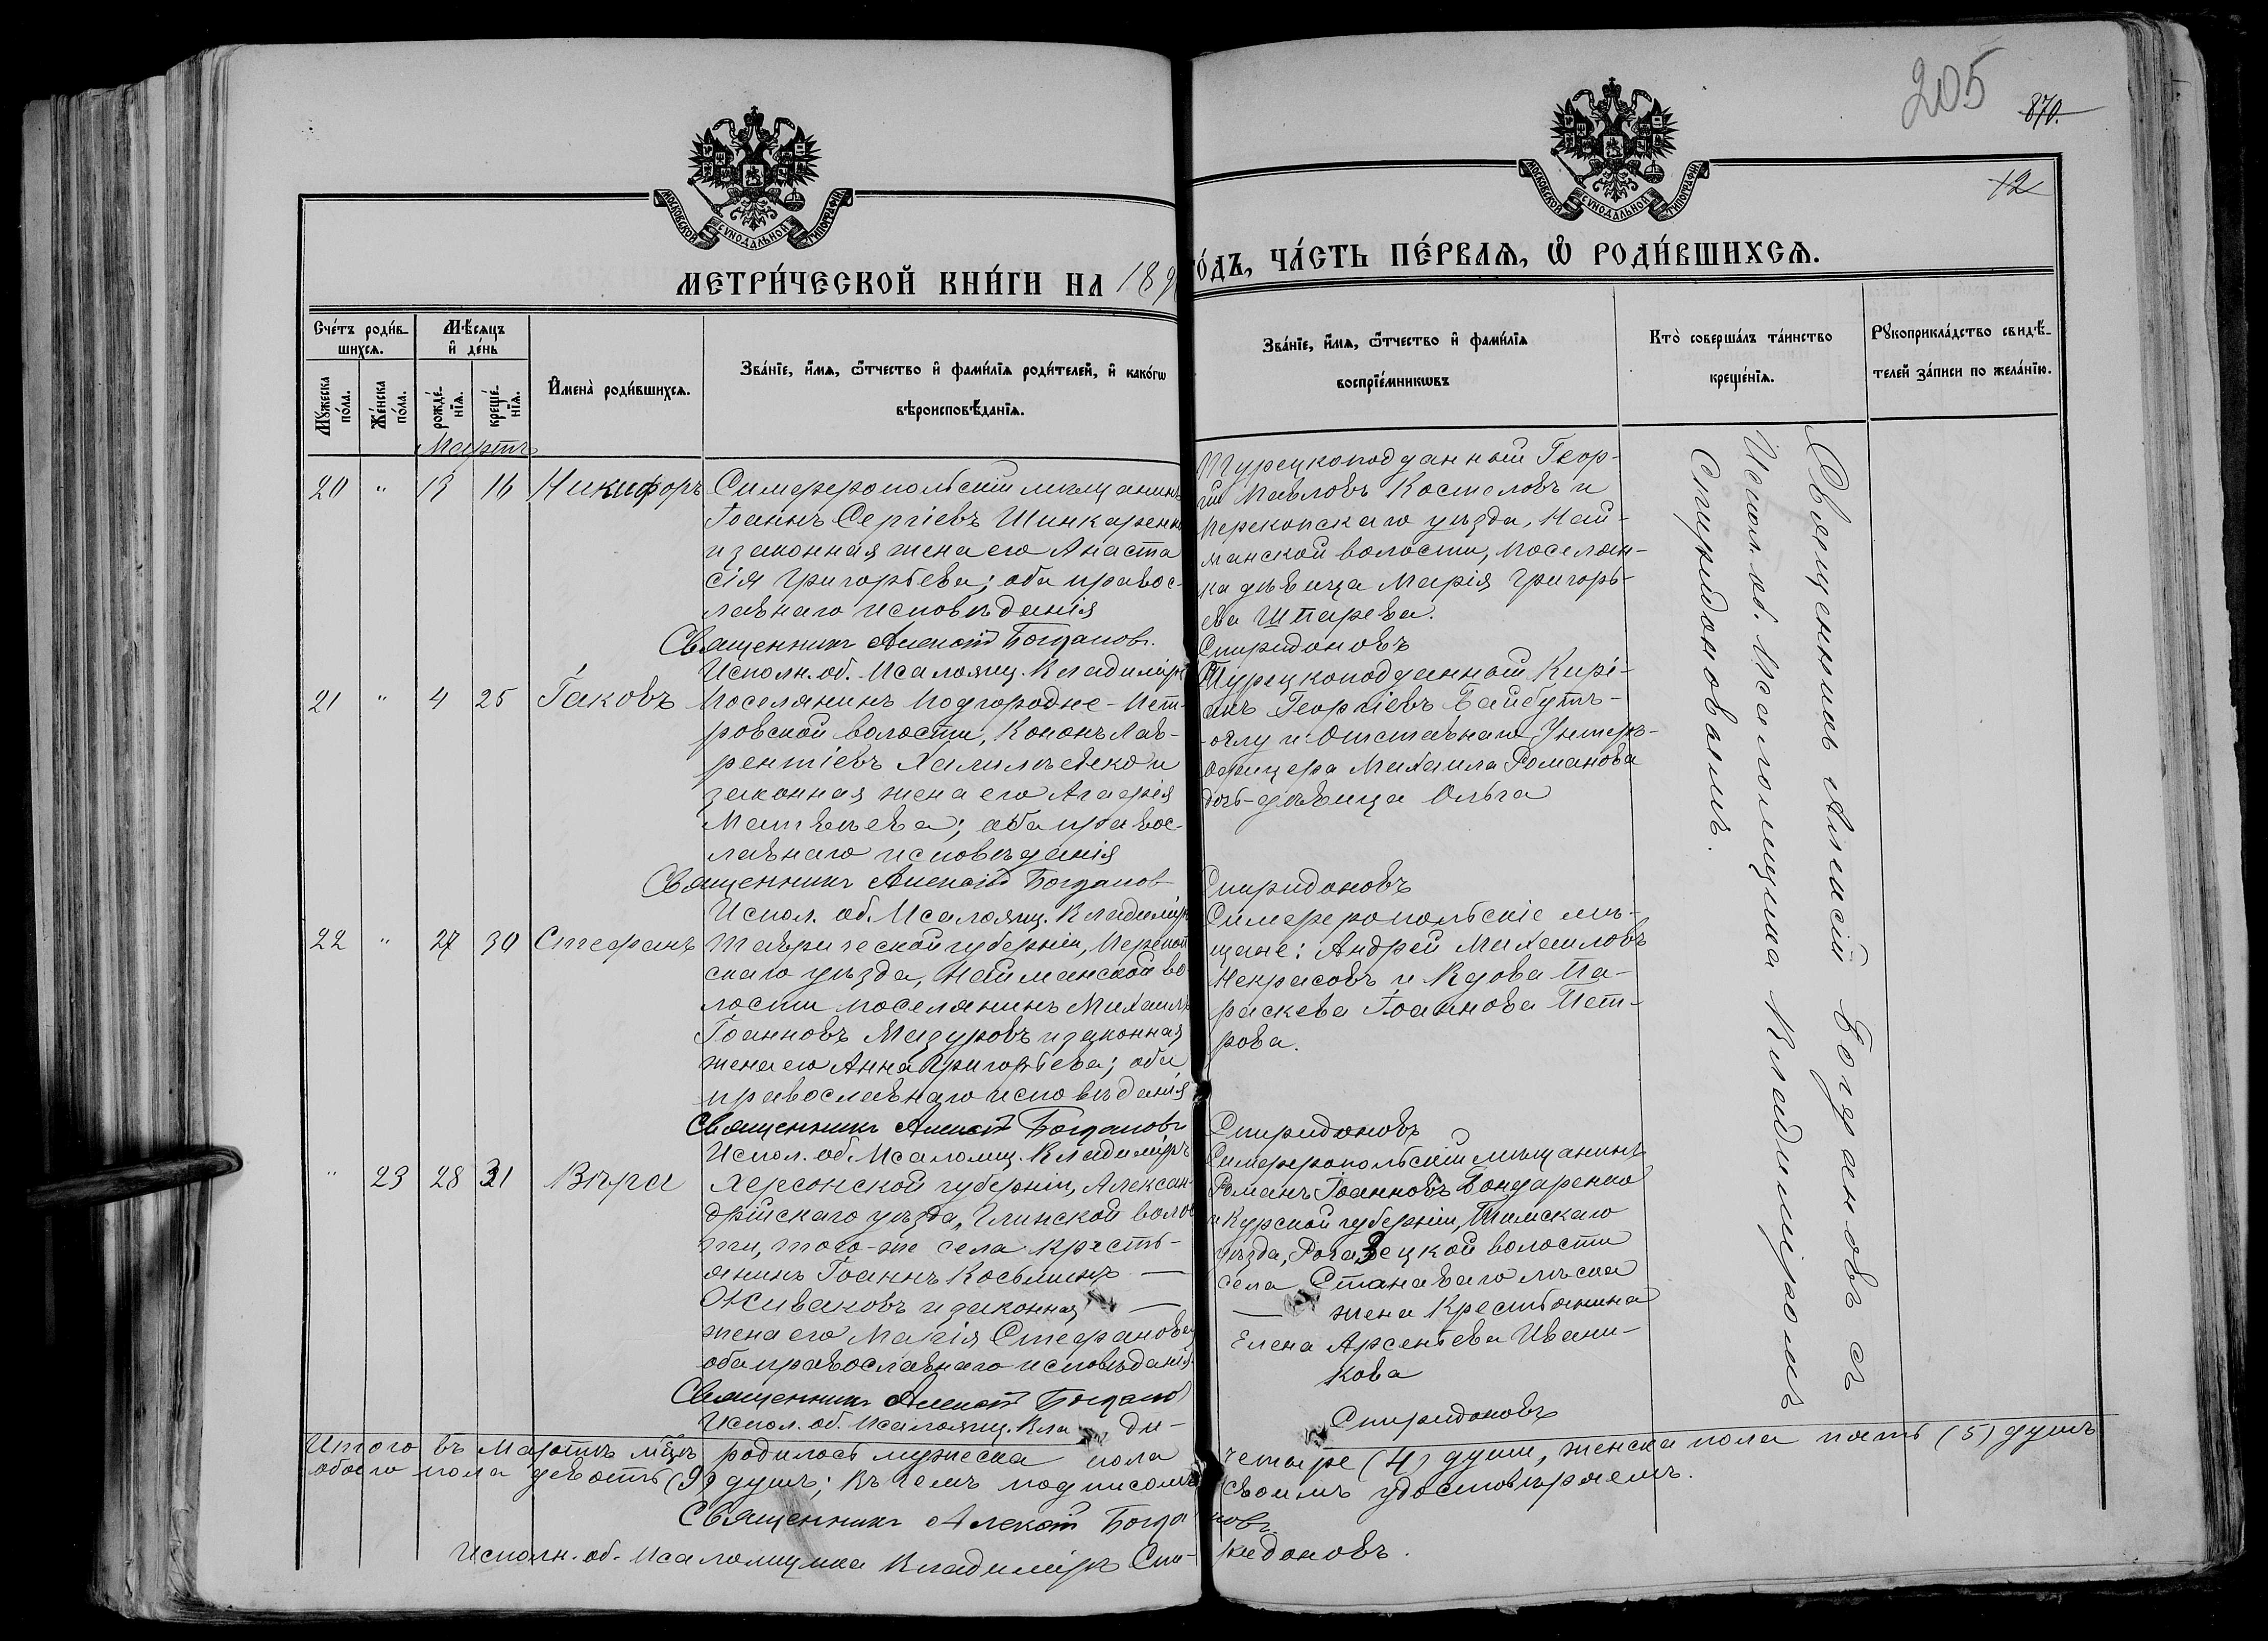 205
870.
12
МОСКОВСКОЙ СѴНОДАЛЬНОЙ ТИПОГРАФІИ
МОСКОВСКОЙ СѴНОДАЛЬНОЙ ТИПОГРАФІИ
МЕТРИ́ЧЕСКОЙ КНИ́ГИ НА 189
О́ДЪ, ЧА́СТЬ ПЕ́РВАѦ, Ѽ РОДИ́ВШИХСѦ.
Сче́тъ роди́в-
шихсѧ.
Мѣ́сѧцъ
и҆ де́нь
Мꙋ́жеска по́ла.
Же́нска по́ла.
рожде́-нїѧ.
креще́-нїѧ.
И҆мена̀ роди́вшихсѧ.
Зва́нїе, и҆́мѧ, ѻ҆́тчество и҆ фами́лїѧ роди́телей, и҆ како́гѡ
вѣроисповѣ́данїѧ.
Зва́нїе, и҆́мѧ, ѻ҆́тчество и҆ фами́лїѧ
воспрїе́мникѡвъ
Кто̀ соверша́лъ та́инство
креще́нїѧ.
Рꙋкоприкла́дство свидѣ́-
телей за́писи по жела́нїю.
Мартъ
20 " 13 16 Никифоръ
Симферопольскій мѣщанинъ
Іоаннъ Сергіевъ Шинкаренко
и законная жена его Анаста
сія Григорьева; оба правос-
лавнаго исповѣданія
Священникъ Алексій Богдановъ.
Исполн. об. Псаломщ. Владиміръ
Турецкоподданный Геор-
гій Павловъ Костеловъ и
Перекопскаго уѣзда, Най-
манской волости, поселян-
ка дѣвица Марія Григорь-
ева Шпарева.
Спиридоновъ
21 " 4 25 Іаковъ
Поселянинъ Подгородне-Пет-
ровской волости, Кононъ Лав-
рентіевъ
законная жена его Агафія
Матвѣева; оба правос-
лавнаго исповѣданія
Священникъ Алексій Богдановъ
Испол. об. Псаломщ. Владиміръ
Турецкоподданный Кирі-
акъ Георгіевъ Байбутъ-
-оглу и Отставнаго Унтеръ-
офицера Михаила Романова
дочь-дѣвица Ольга
Спиридоновъ
22 " 27 30 Стефанъ
Таврической губерніи, Перекоп
скаго уѣзда, Найманской во-
лости поселянинъ Михаилъ
Іоанновъ Мазуровъ и законная
жена его Анна Григорьева; оба
православнаго исповѣданія
Священникъ Алексій Богдановъ
Испол. об. Псаломщ. Владиміръ
Симферопольскіе мѣ-
щане: Андрей Михаиловъ
Некрасовъ и Вдова Па-
раскева Іоаннова Пет-
рова.
Спиридоновъ
" 23 28 31 Вѣра
Херсонской губерніи, Алексан-
дрійскаго уѣзда, Глинской волос
ти, того-же села кресть-
янинъ Іоаннъ Косьминъ —
Живаковъ и законная —
жена его Марія Стефанова
оба православнаго исповѣданія
Священникъ Алексій Богданов
Испол. об. Псаломщ. Вла ди-
Симферопольскій мѣщанинъ
Романъ Іоанновъ Бондаренко
и Курской губерніи, Тимскаго
уѣзда, волости
села Становаго лѣска
— жена Крестьянина
Елена Арсеньева Ивани-
кова
Спиридоновъ
Священникъ Алексій Богдановъ съ
Испол. об. Псаломщика Владиміромъ
Спиридоновымъ.
Итого въ Мартѣ мѣцѣ родилось мужеска пола четыре (4) души, женска пола пять (5) душъ
обоего пола девять (9) душъ; въ чемъ подписомъ своимъ удостовѣряемъ.
Священникъ Алексій Богдановъ.
Исполн. об. Псаломщика Владиміръ Спиридоновъ.